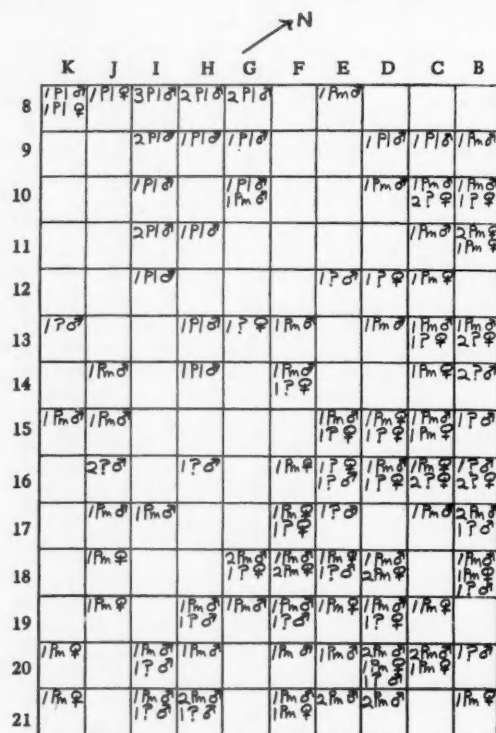 N
K J I H G F E D C B
8 1Pl♂ 1Pl♀ 3Pl♂ 2Pl♂ 2Pl♂ 1Pm♂
1Pl♀
9 2Pl♂ 1Pl♂ 1Pl♂ 1Pl♂ 1Pl♂ 1Pm♂
10 1Pl♂ 1Pl♂ 1Pm♂ 1Pm♂ 1Pm♂
1Pm♂ 2?♀ 1?♀
11 2Pl♂ 1Pl♂ 1Pm♂ 2Pm♀
1Pm♀
12 1Pl♂ 1?♂ 1?♀ 1Pm♀
13 1?♂ 1Pl♂ 1?♀ 1Pm♂ 1Pm♂ 1Pm♂ 1Pm♂
1?♀ 2?♀
14 1Pm♂ 1Pl♂ 1Pm♂ 1Pm♀ 2?♂
1?♀
15 1Pm♂ 1Pm♂ 1Pm♂ 1Pm♀ 1Pm♂ 1?♂
1?♀ 1?♀ 1Pm♀
16 2?♂ 1?♂ 1Pm♀ 1?♀ 1Pm♂ 1Pm♀ 1?♂
1?♂ 1?♀ 2?♀ 2?♀
17 1Pm♂ 1Pm♂ 1Pm♀ 1?♂ 1Pm♂ 2Pm♂
1?♀ 1?♂
18 1Pm♀ 2Pm♂ 1Pm♂ 1Pm♀ 1Pm♂ 1Pm♂
1?♀ 2Pm♀ 1?♂ 2Pm♀ 1Pm♀
1?♂
19 1Pm♀ 1Pm♂ 1Pm♂ 1Pm♂ 1Pm♀ 1Pm♂ 1Pm♀
1?♂ 1?♂ 1?♀
20 1Pm♀ 1Pm♂ 1Pm♂ 1Pm♂ 1Pm♂ 2Pm♂ 2Pm♂ 1?♂
1?♂ 1Pm♀ 1Pm♀
1?♂
21 1Pm♀ 1Pm♂ 2Pm♂ 1Pm♂ 2Pm♂ 2Pm♂ 1Pm♀
1?♂ 1?♂ 1Pm♀